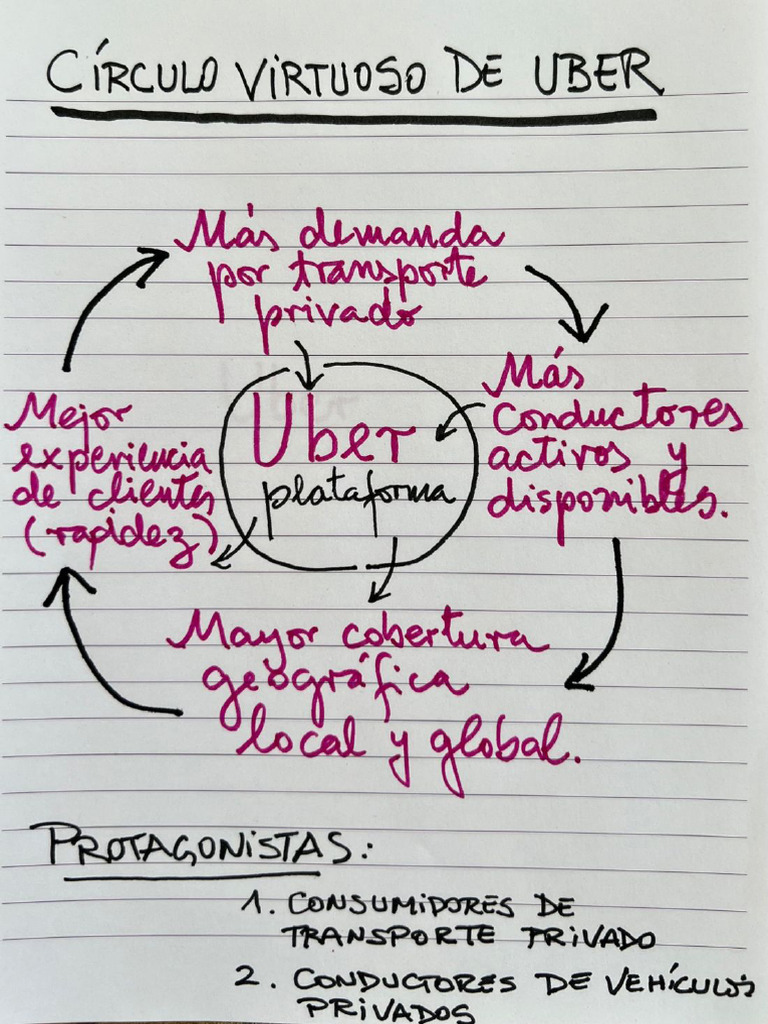 CÍRCULO VIRTUOSO DE UBER
Más demanda
por transporte
privado
Más
conductores
activos y
disponibles.
Mejor
experiencia
de clientes
(rapidez)
Uber
plataforma
Mayor cobertura
geográfica
local y global.
PROTAGONISTAS:
1. CONSUMIDORES DE
TRANSPORTE PRIVADO
2. CONDUCTORES DE VEHÍCULOS
PRIVADOS